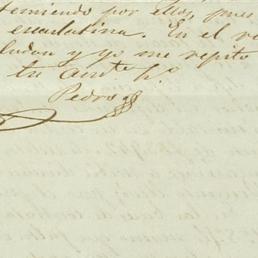 temiendo por ellos, pues
escarlatina. En el re
ludan y yo me repito
tu amte. h.o
Pedro